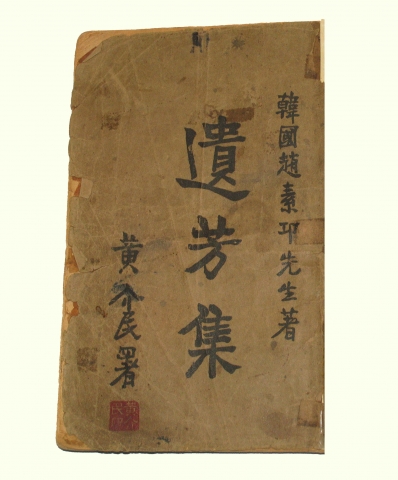 韓國趙素卬先生著
遺芳集
黃介民署